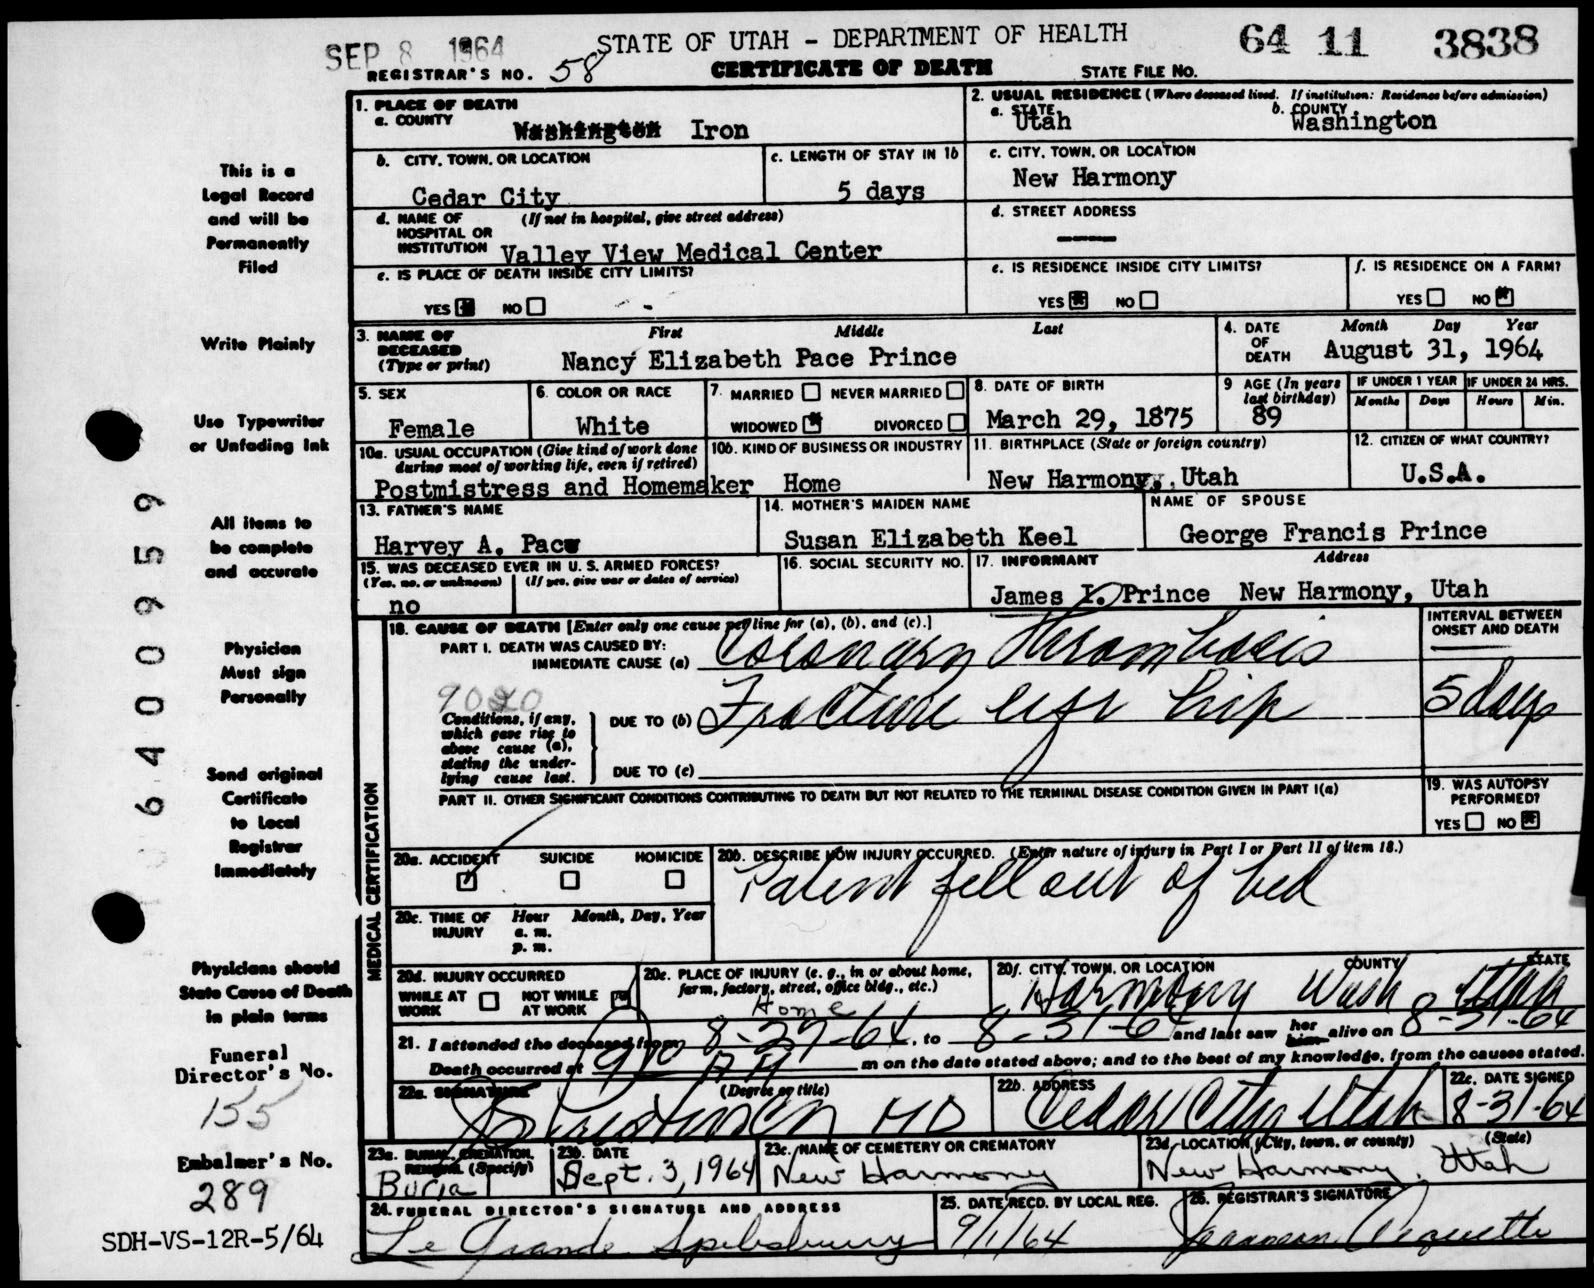 SEP 8 1964
STATE OF UTAH - DEPARTMENT OF HEALTH
64 11 3838
REGISTRAR'S NO. 58
CERTIFICATE OF DEATH
STATE FILE NO.
This is a
Legal Record
and will be
Permanently
Filed
Write Plainly
Use Typewriter
or Unfading Ink
All items to
be complete
and accurate
Physician
Must sign
Personally
Send original
Certificate
to Local
Registrar
Immediately
Physicians should
State Cause of Death
in plain terms
Funeral
Director's No.
155
Embalmer's No.
289
SDH-VS-12R-5/64
6400959
1. PLACE OF DEATH
a. COUNTY
Washington Iron
2. USUAL RESIDENCE (Where deceased lived. If institution: Residence before admission)
a. STATE
Utah
b. COUNTY
Washington
b. CITY, TOWN, OR LOCATION
Cedar City
c. LENGTH OF STAY IN 1b
5 days
c. CITY, TOWN, OR LOCATION
New Harmony
d. NAME OF (If not in hospital, give street address)
HOSPITAL OR
INSTITUTION Valley View Medical Center
d. STREET ADDRESS
e. IS PLACE OF DEATH INSIDE CITY LIMITS?
YES NO
e. IS RESIDENCE INSIDE CITY LIMITS?
YES NO
f. IS RESIDENCE ON A FARM?
YES NO
3. NAME OF
DECEASED
(Type or print)
First Middle Last
Nancy Elizabeth Pace Prince
4. DATE
OF
DEATH
Month Day Year
August 31, 1964
5. SEX
Female
6. COLOR OR RACE
White
7. MARRIED NEVER MARRIED
WIDOWED DIVORCED
8. DATE OF BIRTH
March 29, 1875
9 AGE (In years
last birthday)
89
IF UNDER 1 YEAR
Months Days
IF UNDER 24 HRS.
Hours Min.
10a. USUAL OCCUPATION (Give kind of work done
during most of working life, even if retired)
Postmistress and Homemaker
10b. KIND OF BUSINESS OR INDUSTRY
Home
11. BIRTHPLACE (State or foreign country)
New Harmony, Utah
12. CITIZEN OF WHAT COUNTRY?
U.S.A.
13. FATHER'S NAME
Harvey A. Pace
14. MOTHER'S MAIDEN NAME
Susan Elizabeth Keel
NAME OF SPOUSE
George Francis Prince
15. WAS DECEASED EVER IN U. S. ARMED FORCES?
(Yes, no, or unknown) (If yes, give war or dates of service)
no
16. SOCIAL SECURITY NO.
17. INFORMANT Address
James I. Prince New Harmony, Utah
MEDICAL CERTIFICATION
18. CAUSE OF DEATH [Enter only one cause per line for (a), (b), and (c).]
INTERVAL BETWEEN
ONSET AND DEATH
PART I. DEATH WAS CAUSED BY:
IMMEDIATE CAUSE (a) Coronary Thrombosis
Conditions, if any,
which gave rise to
above cause (a),
stating the under-
lying cause last.
DUE TO (b) Fracture left hip
5 days
DUE TO (c)
PART II. OTHER SIGNIFICANT CONDITIONS CONTRIBUTING TO DEATH BUT NOT RELATED TO THE TERMINAL DISEASE CONDITION GIVEN IN PART I(a)
19. WAS AUTOPSY
PERFORMED?
YES NO
20a. ACCIDENT SUICIDE HOMICIDE
20b. DESCRIBE HOW INJURY OCCURRED. (Enter nature of injury in Part I or Part II of item 18.)
Patient fell out of bed
20c. TIME OF
INJURY
Hour Month, Day, Year
a. m.
p. m.
20d. INJURY OCCURRED
WHILE AT
WORK
NOT WHILE
AT WORK
20e. PLACE OF INJURY (e. g., in or about home,
farm, factory, street, office bldg., etc.)
Home
20f. CITY, TOWN, OR LOCATION COUNTY STATE
Harmony Wash Utah
21. I attended the deceased from 8-27-64, to 8-31-64 and last saw her him alive on 8-31-64
Death occurred at m on the date stated above; and to the best of my knowledge, from the causes stated.
22a. SIGNATURE (Degree or title)
MD
22b. ADDRESS
Cedar City Utah
22c. DATE SIGNED
8-31-64
23a. BURIAL, CREMATION,
REMOVAL (Specify)
Burial
23b. DATE
Sept. 3, 1964
23c. NAME OF CEMETERY OR CREMATORY
New Harmony
23d. LOCATION (City, town, or county) (State)
New Harmony, Utah
24. FUNERAL DIRECTOR'S SIGNATURE AND ADDRESS
Le Grande Spilsbury
25. DATE RECD. BY LOCAL REG.
9/1/64
26. REGISTRAR'S SIGNATURE